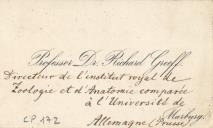 Professor Dr. Richard Greeff.
Directeur de l'institut royal de
Zoologie et d'Anatomie comparée
à l'Université de
Marburg.
Allemagne (Prusse)
CP 172